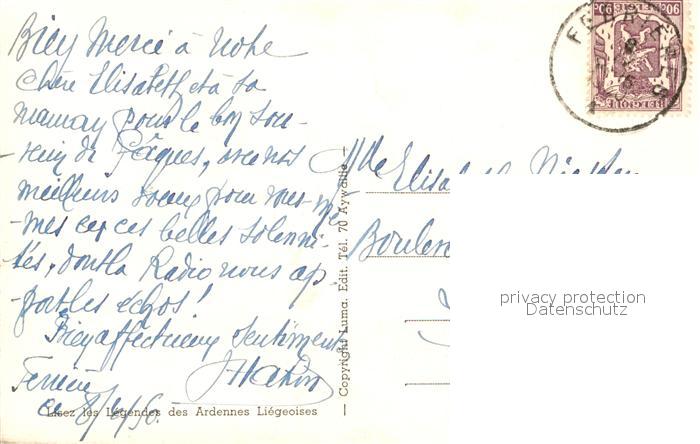 Bien Merci à notre
chère Elisabeth et à sa
maman pour le bon sou-
venir de Pâques, avec nos
meilleurs voeux pour vous-mê-
-mes en ces belles solenni-
tés, dont la Radio nous ap-
-porte les échos!
Bien affectueux sentiments
Ferrières
ce 8/4/56.
Lisez les Légendes des Ardennes Liégeoises
— Copyright Luma. Edit. Tél. 70 Aywaille —
Mlle Elisabeth
BELGIQUE
90
90
privacy protection
Datenschutz